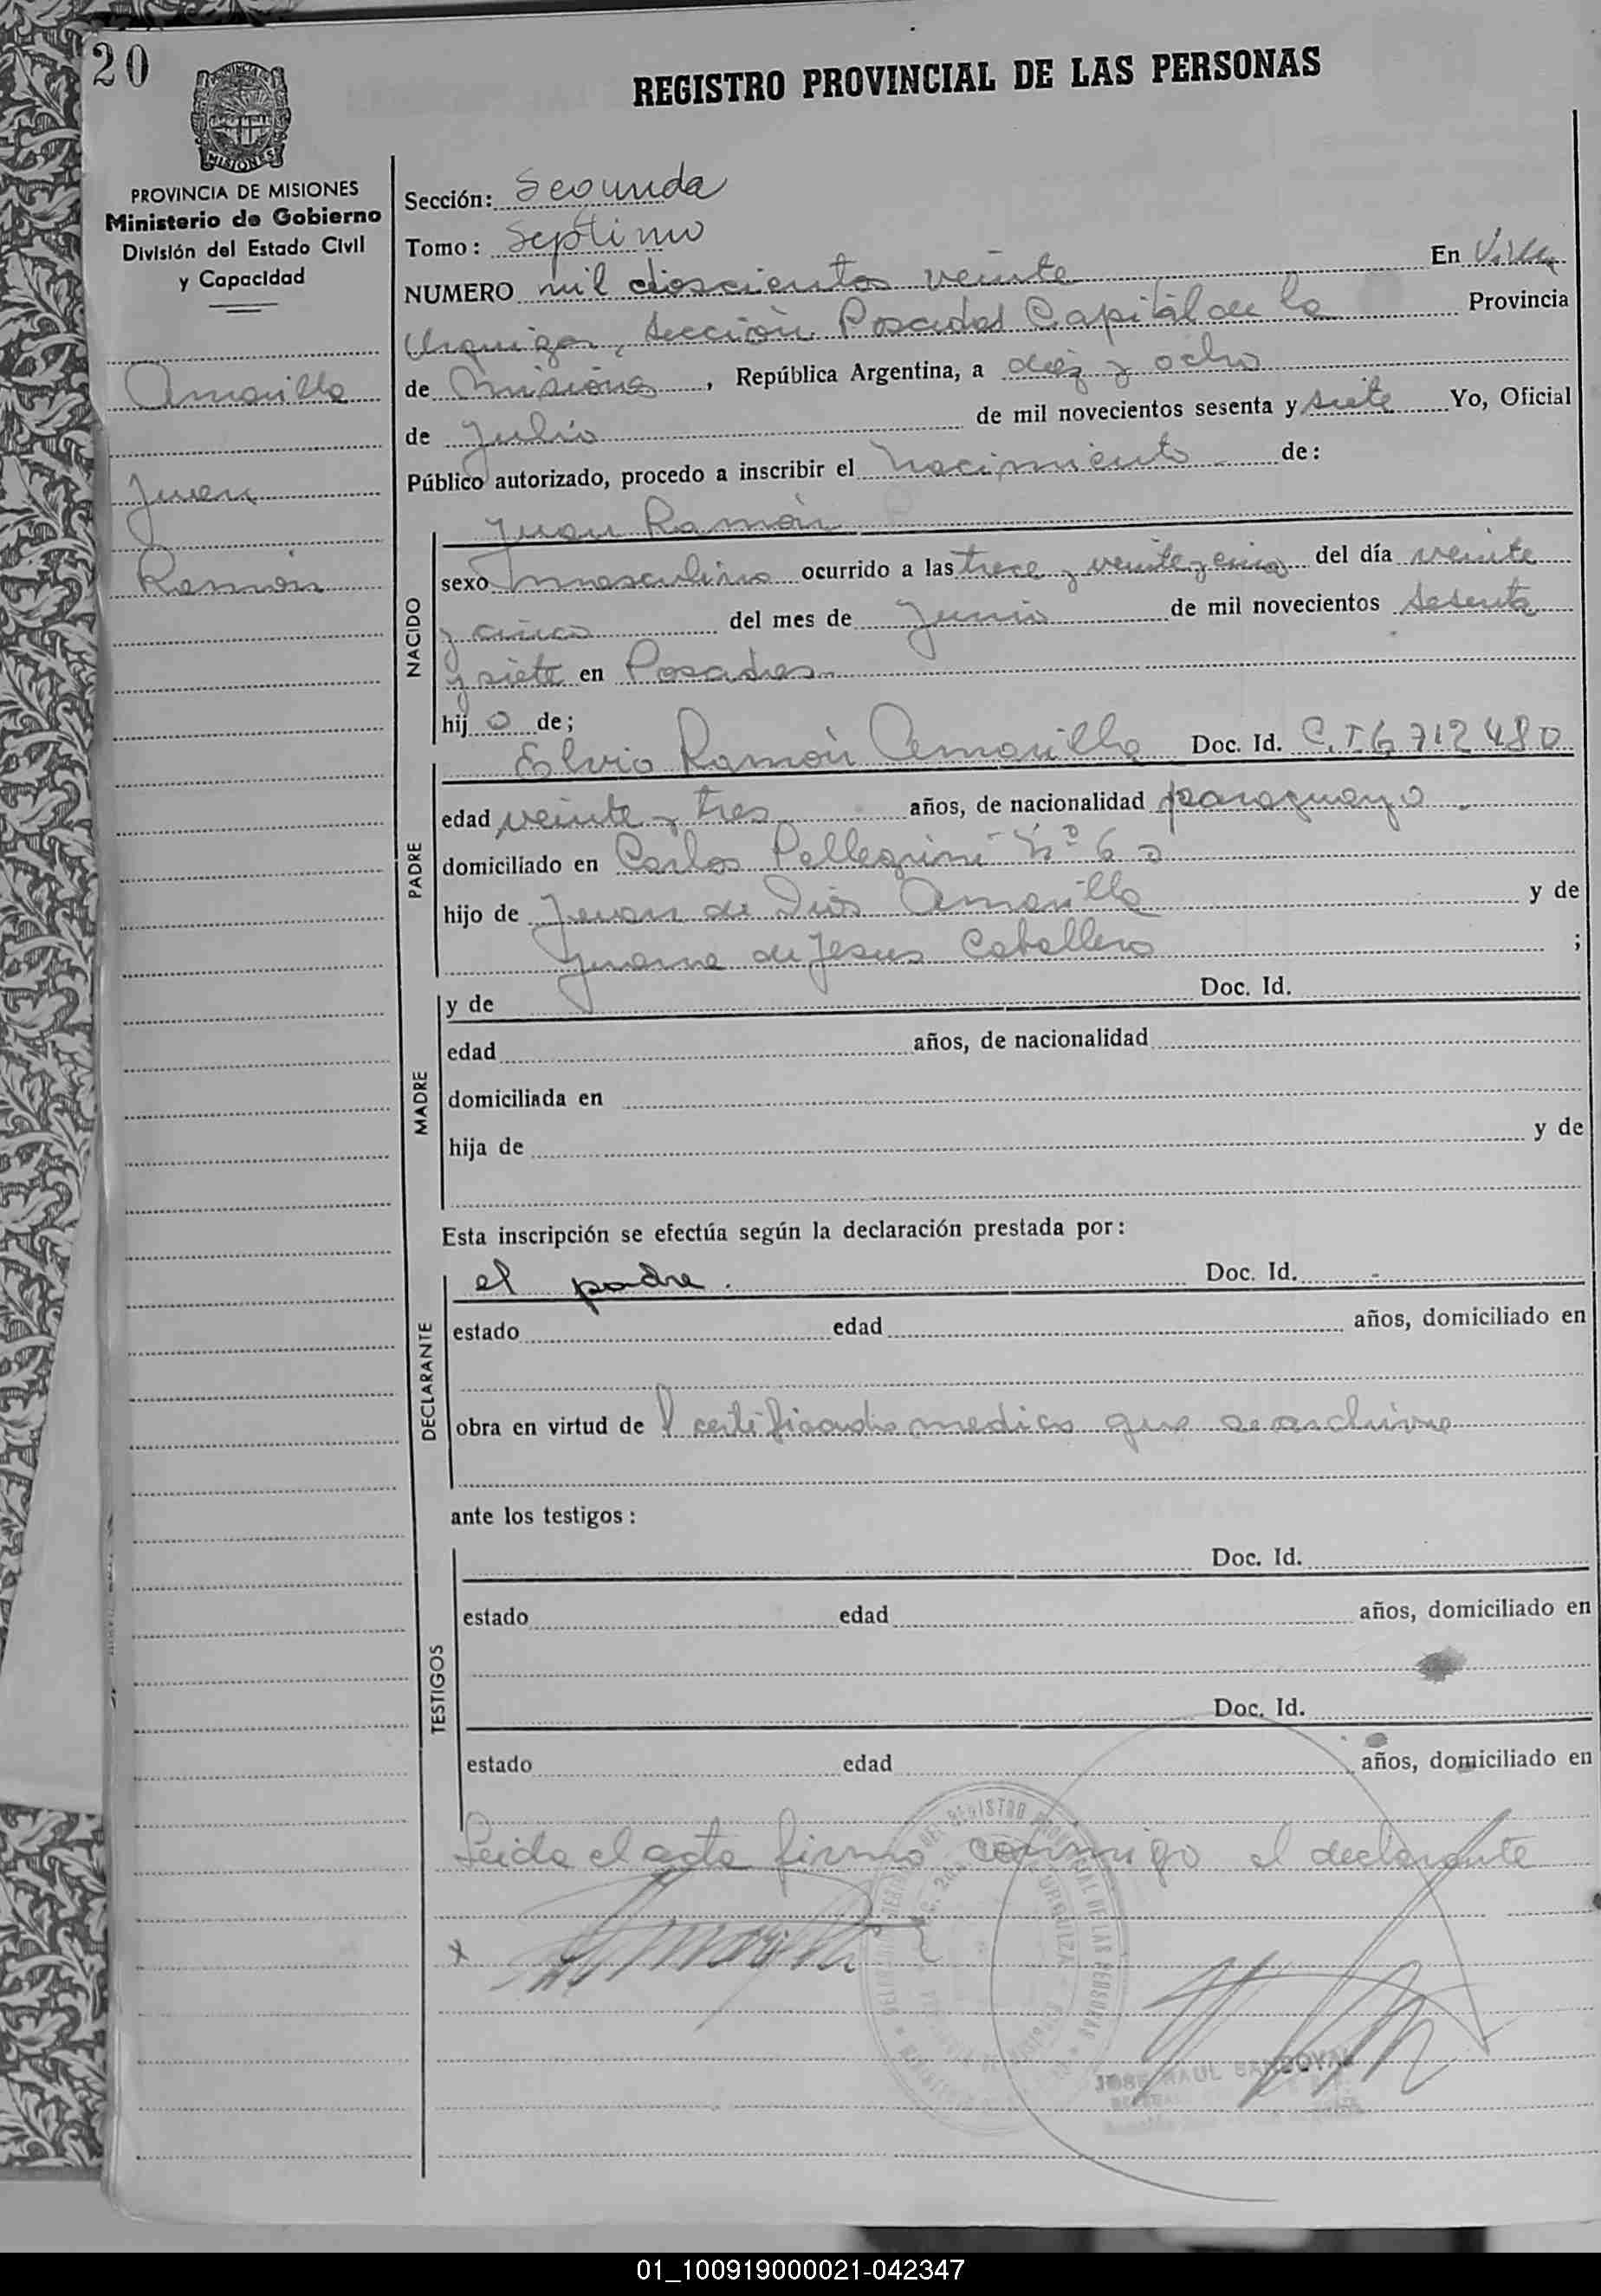 20
REGISTRO PROVINCIAL DE LAS PERSONAS
MISIONES
PROVINCIA DE MISIONES
Ministerio de Gobierno
División del Estado Civil
y Capacidad
Amarilla
Juan
Ramón
Sección: Segunda
Tomo: Septimo
NUMERO mil doscientos veinte En Villa
Urquiza, Sección Posadas Capital de la Provincia
de Misiones, República Argentina, a diez y ocho
de Julio de mil novecientos sesenta y siete Yo, Oficial
Público autorizado, procedo a inscribir el nacimiento de:
NACIDO
Juan Ramón
sexo masculino ocurrido a las trece y veinte y cinco del día veinte
y cinco del mes de Junio de mil novecientos sesenta
y siete en Posadas
hijo de;
PADRE
Elvio Ramón Amarilla Doc. Id. C.I. 6712480
edad veinte y tres años, de nacionalidad paraguayo
domiciliado en Carlos Pellegrini Nº 60
hijo de Juan de Dios Amarilla y de
Juana de Jesus Caballero ;
MADRE
y de Doc. Id.
edad años, de nacionalidad
domiciliada en
hija de y de
Esta inscripción se efectúa según la declaración prestada por:
DECLARANTE
el padre. Doc. Id. -
estado edad años, domiciliado en
obra en virtud de certificado medico que se archiva
ante los testigos:
TESTIGOS
Doc. Id.
estado edad años, domiciliado en
Doc. Id.
estado edad años, domiciliado en
Leida el acta firmo conmigo el declarante
x Amarilla
JOSE RAUL SANDOVAL
01_100919000021-042347